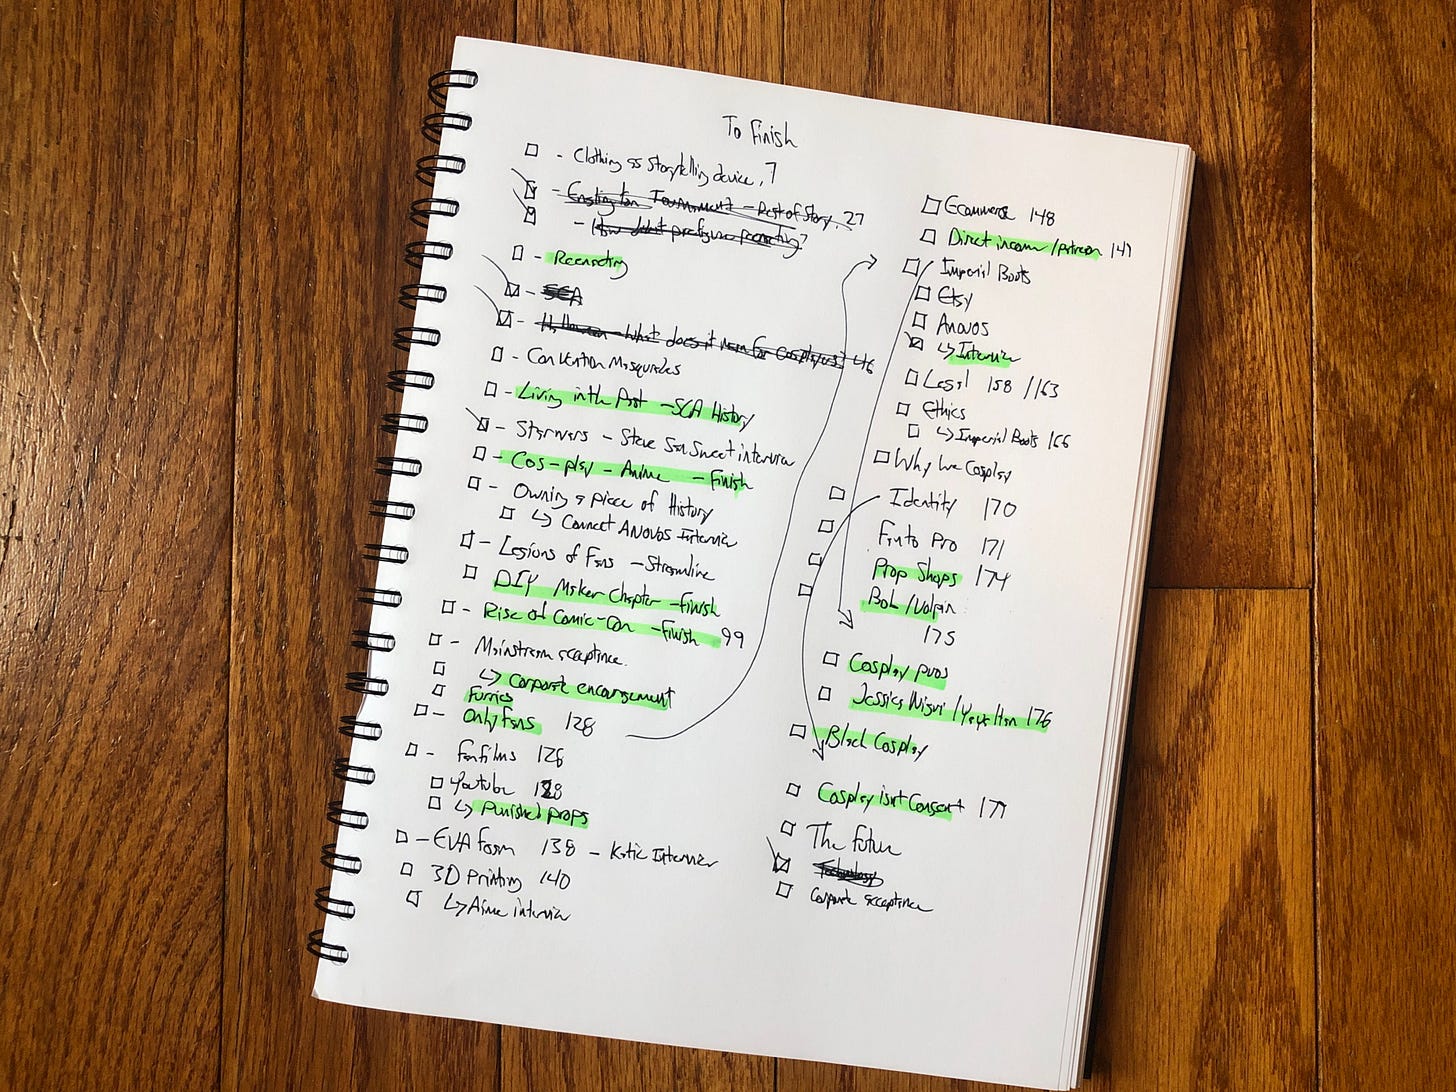 To Finish
- Clothing as Storytelling device, 7
- Eglington Tournament - Rest of Story, 27
- How does it prefigure reenacting?
- Reenacting
- SCA
- Halloween - What does it mean for cosplayers? 46
- Convention Masquerades
- Living in the Past - SCA History
- Star Wars - Steve Sansweet interview
- Cos-play - Anime - Finish
- Owning a piece of History
↳ Connect ANOVOS Interview
- Legions of Fans - Streamline
DIY Maker Chapter - Finish
- Rise of Comic-Con - Finish 99
- Mainstream acceptance.
↳ Corporate encouragement
Furries
- OnlyFans 128
- Fanfilms 128
Youtube 128
↳ Punished props
- EVA Foam 138 - Katie Interview
3D Printing 140
↳ Aime interview
Ecommerce 148
Direct income / patreon 149
Imperial Boots
Etsy
Anovos
↳ Interview
Legal 158 / 163
Ethics
↳ Imperial Boots 166
Why We Cosplay
Identity 170
Fan to Pro 171
Prop Shops 174
Bob / Volpin
175
Cosplay pros
Jessica Nigri / Yaya Han 176
Black Cosplay
Cosplay isn't Consent 177
The Future
Technology
Corporate acceptance